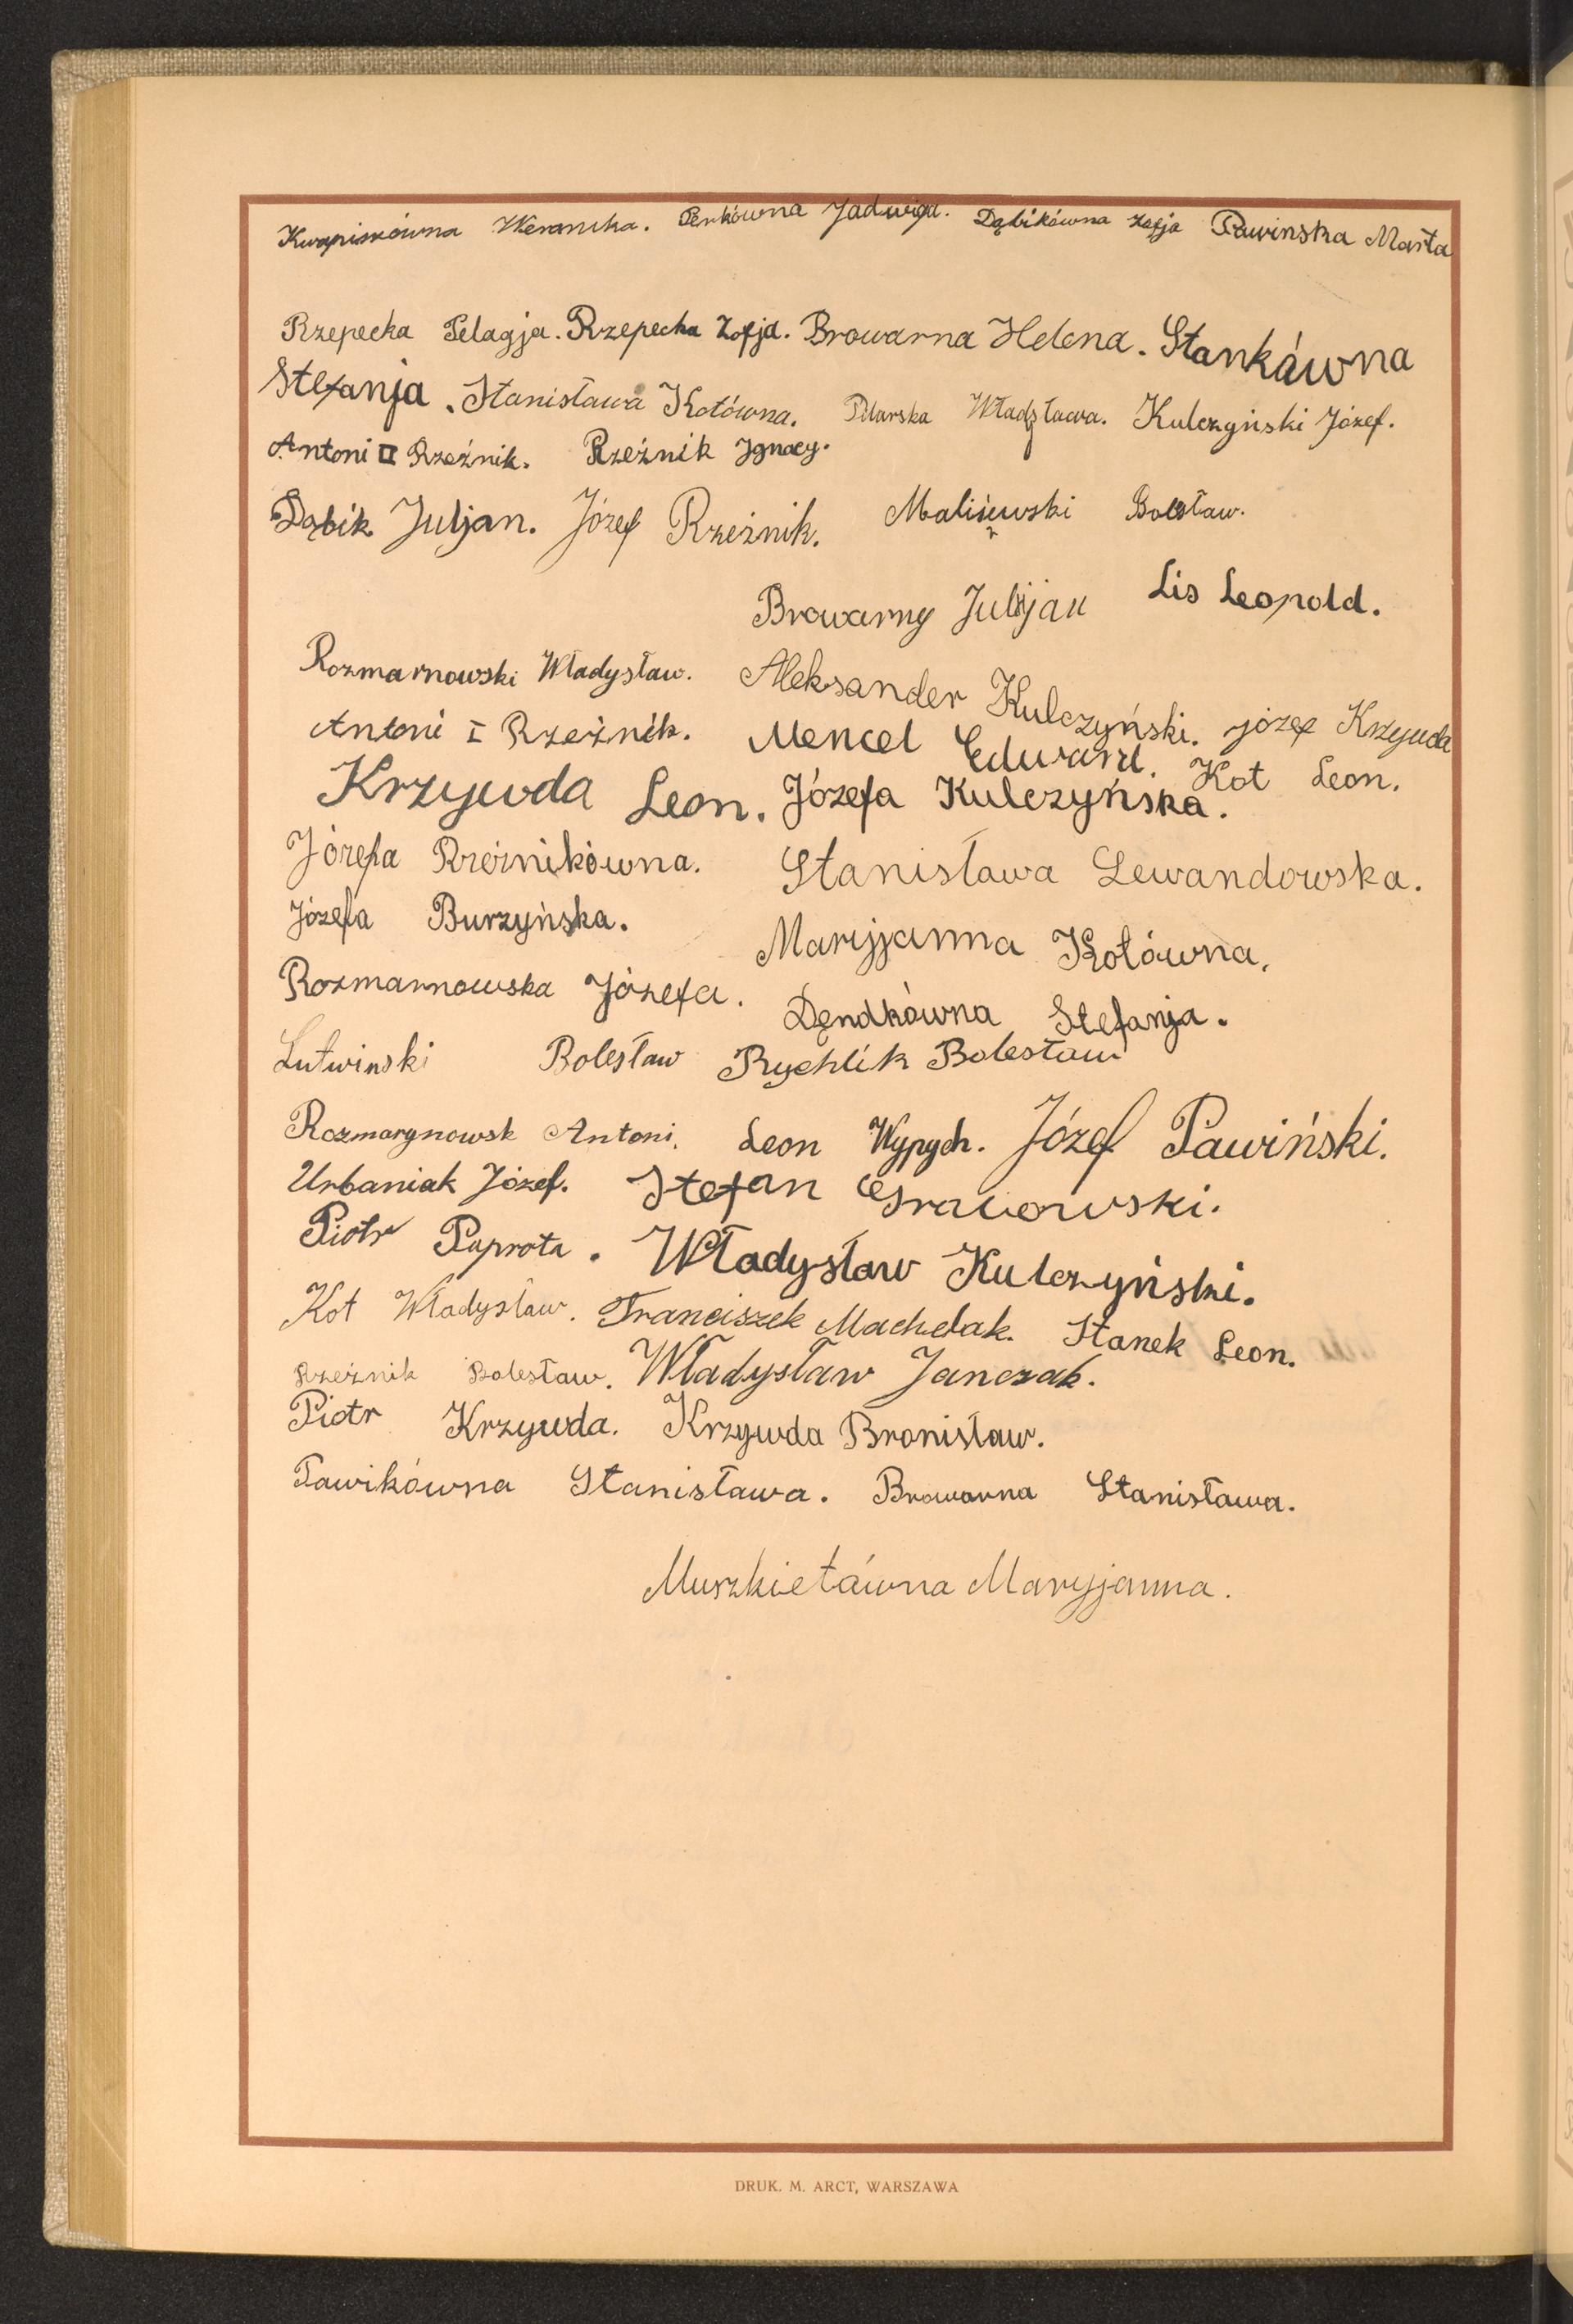 Kwapiszówna Weronika. Perkówna Jadwiga. Dąbikówna Zofja Pawinska Marta
Rzepecka Pelagja. Rzepecka Zofja. Browarna Helena. Stankówna
Stefanja. Stanisława Kotówna. Pilarska Władysława. Kulczyński Józef.
Antoni II Rzeźnik. Rzeźnik Ignacy.
Dąbik Juljan. Józef Rzeźnik. Bolesław.
Browarny Julijan Lis Leopold.
Rozmarnowski Władysław. Aleksander Kulczyński. Józef Krzywda
Antoni I Rzeźnik. Mencel Edward. Kot Leon.
Krzywda Leon. Józefa Kulczyńska.
Józefa Rzeźnikówna. Stanisława Lewandowska.
Józefa Burzyńska. Maryjanna Kotówna.
Rozmarnowska Józefa. Dęndkówna Stefanja.
Lutwinski Bolesław Rychlik Bolesław
Rozmarynowsk Antoni. Leon Wypych. Józef Pawiński.
Urbaniak Józef. Stefan
Piotr Paprota. Władysław Kulczyński.
Kot Władysław. Franciszek Machelak. Stanek Leon.
Rzeźnik Bolesław. Władysław Janczak.
Piotr Krzywda. Krzywda Bronisław.
Pawikówna Stanisława. Browarna Stanisława.
Muszkietówna Maryjanna.
DRUK. M. ARCT, WARSZAWA